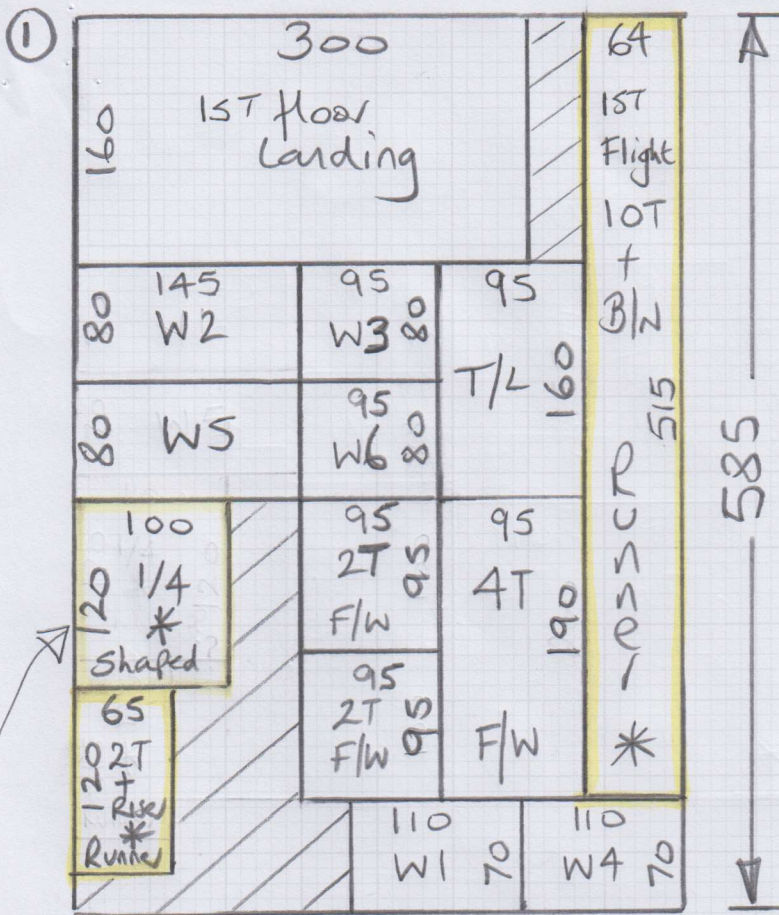 1
300
160
1ST floor
Landing
64
1ST
Flight
10T
+
B/N
515
Runner
*
585
145
80
W2
95
W3 80
95
T/L 160
80 W5
95
W6 80
100
120
1/4
*
Shaped
95
2T 95
F/W
95
4T
190
F/W
95
2T 95
F/W
65
120
2T
+
Riser
*
Runner
110
W1 70
110
W4 70